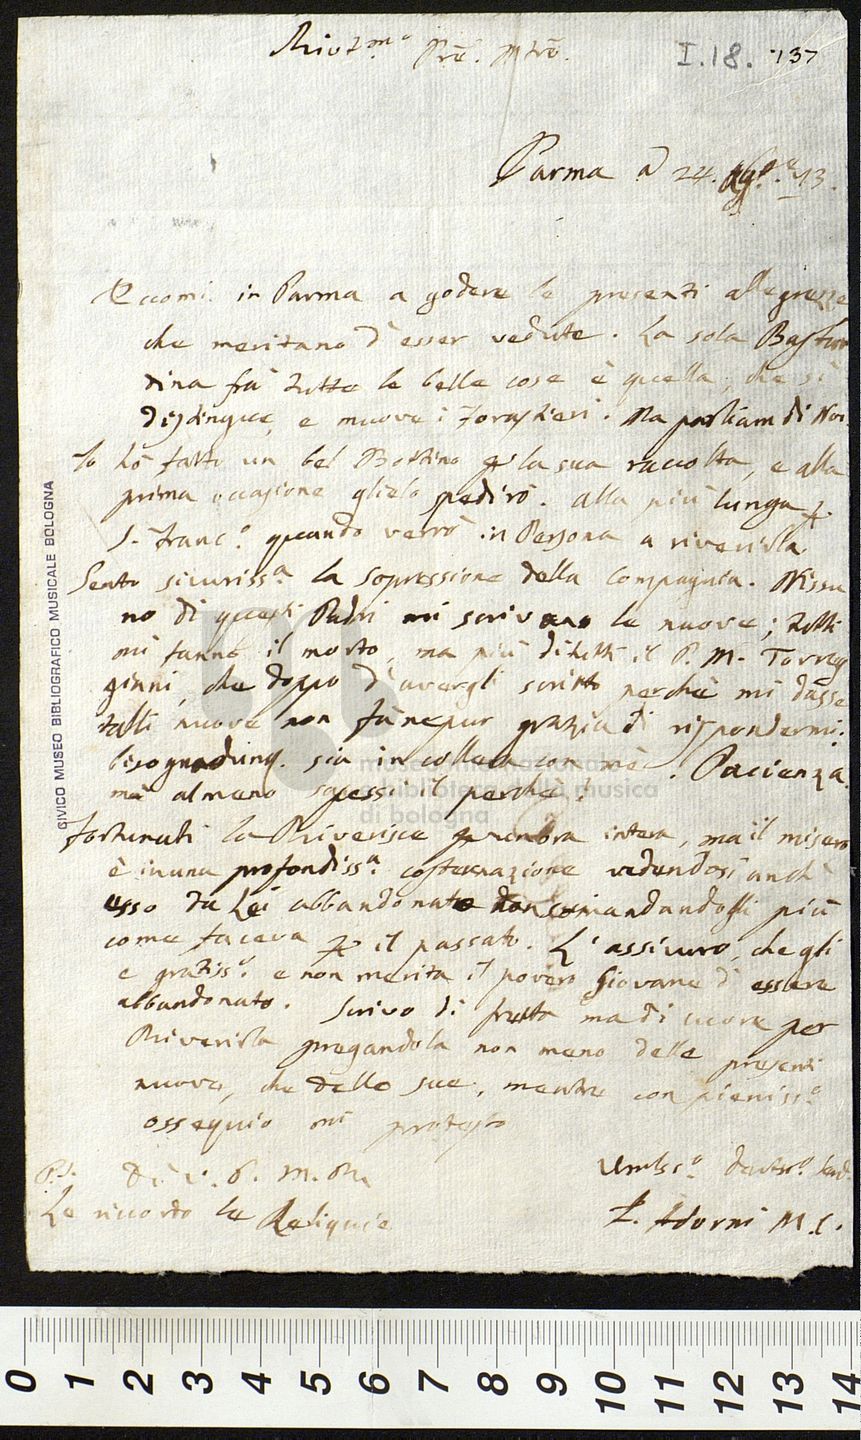 Rivd.mo Prē. Mrō.
I.18. 137
Parma a 24. Ag.o 73.
Eccomi in Parma a godere le presenti allegrezze
che meritano d'esser vedute. La sola
dina frà tutte le belle cose è quella, che si
distingue, e muove i Forastieri. Ma parliam di Noi.
Io hò fatto un bel Bottino p la sua raccolta, e alla
prima occasione glielo spedirò. alla più lunga p
S. Franc.o quando verrò in Persona a riverirla.
Sento sicuriss.a la sopressione della Compagnia. Nissu
no di questi Padri mi scrivono le nuove; tutti
mi fanno il morto, ma più di tutti il P. M. Torreg
giani, che doppo d'avergli scritto perchè mi dasse
tali nuove non fà nepur grazia di rispondermi.
bisogna dunq. sia in collera con mè. Pacienza.
mà almeno sapessi il perchè!
Fortunati la Riverisce intera, ma il misero
è in una profondiss.a costernazione vedendosi anch'
esso da Lei abbandonato non comandandogli più
come faceva p il passato. L'assicuro, che gli
è gratiss.o e non merita il povero Giovane d'essere
abbandonato. Scrivo di fretta ma di cuore per
Riverirla pregandola non meno delle presenti
nuove, che delle sue, mentre con pieniss.o
ossequio mi protesto
Di V. P. M. R.
Umiss.o devtss.o Serv.
P.S.
Le ricordo le Reliquie
F. Adorni M.C.
CIVICO MUSEO BIBLIOGRAFICO MUSICALE BOLOGNA
museo internazionale
e biblioteca della musica
di bologna
0 1 2 3 4 5 6 7 8 9 10 11 12 13 14